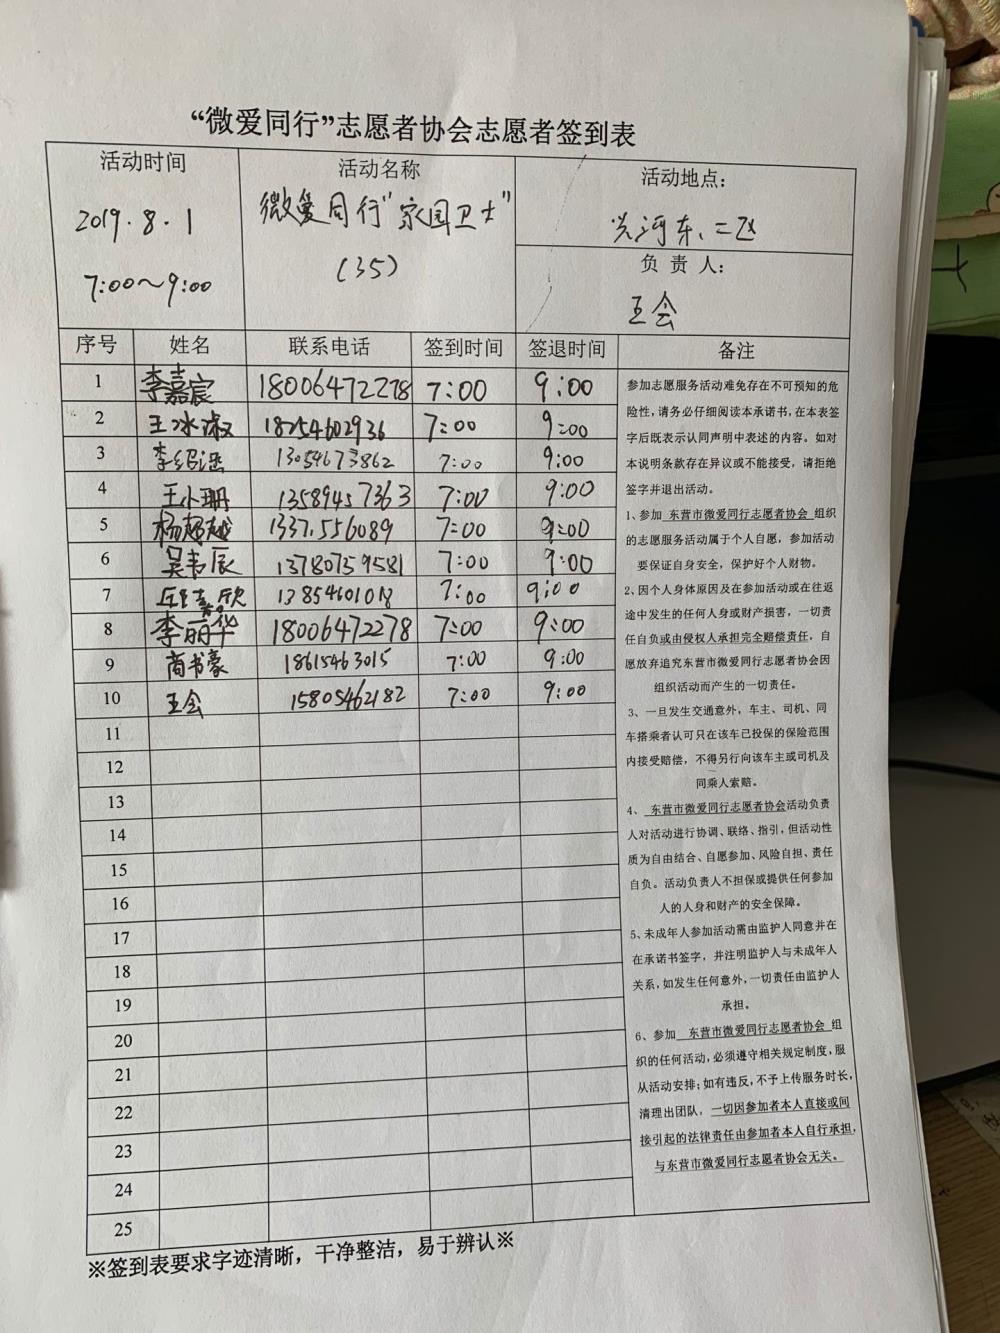 “微爱同行”志愿者协会志愿者签到表
活动时间
2019.8.1
7:00～9:00
活动名称
微爱同行“家园卫士”
(35)
活动地点：
河东、二区
负 责 人：
王会
序号 姓名 联系电话 签到时间 签退时间 备注
1 李嘉宸 18006472278 7:00 9:00
2 王冰淑 18254602936 7:00 9:00
3 李绍 13054673862 7:00 9:00
4 王小珊 13589457363 7:00 9:00
5 杨超越 1337.556089 7:00 9:00
6 吴韦辰 13780759581 7:00 9:00
7 欣 1385460101 7:00 9:00
8 李丽华 18006472278 7:00 9:00
9 商书豪 18615463015 7:00 9:00
10 王会 15805462182 7:00 9:00
11
12
13
14
15
16
17
18
19
20
21
22
23
24
25
参加志愿服务活动难免存在不可预知的危
险性，请务必仔细阅读本承诺书，在本表签
字后既表示认同声明中表述的内容。如对
本说明条款存在异议或不能接受，请拒绝
签字并退出活动。
1、参加 东营市微爱同行志愿者协会 组织
的志愿服务活动属于个人自愿，参加活动
要保证自身安全，保护好个人财物。
2、因个人身体原因及在参加活动或在往返
途中发生的任何人身或财产损害，一切责
任自负或由侵权人承担完全赔偿责任，自
愿放弃追究东营市微爱同行志愿者协会因
组织活动而产生的一切责任。
3、一旦发生交通意外，车主、司机、同
车搭乘者认可只在该车已投保的保险范围
内接受赔偿，不得另行向该车主或司机及
同乘人索赔。
4、 东营市微爱同行志愿者协会活动负责
人对活动进行协调、联络、指引，但活动性
质为自由结合、自愿参加、风险自担、责任
自负。活动负责人不担保或提供任何参加
人的人身和财产的安全保障。
5、未成年人参加活动需由监护人同意并在
在承诺书签字，并注明监护人与未成年人
关系，如发生任何意外，一切责任由监护人
承担。
6、参加 东营市微爱同行志愿者协会 组
织的任何活动，必须遵守相关规定制度，服
从活动安排；如有违反，不予上传服务时长，
清理出团队，一切因参加者本人直接或间
接引起的法律责任由参加者本人自行承担，
与东营市微爱同行志愿者协会无关。
※签到表要求字迹清晰，干净整洁，易于辨认※